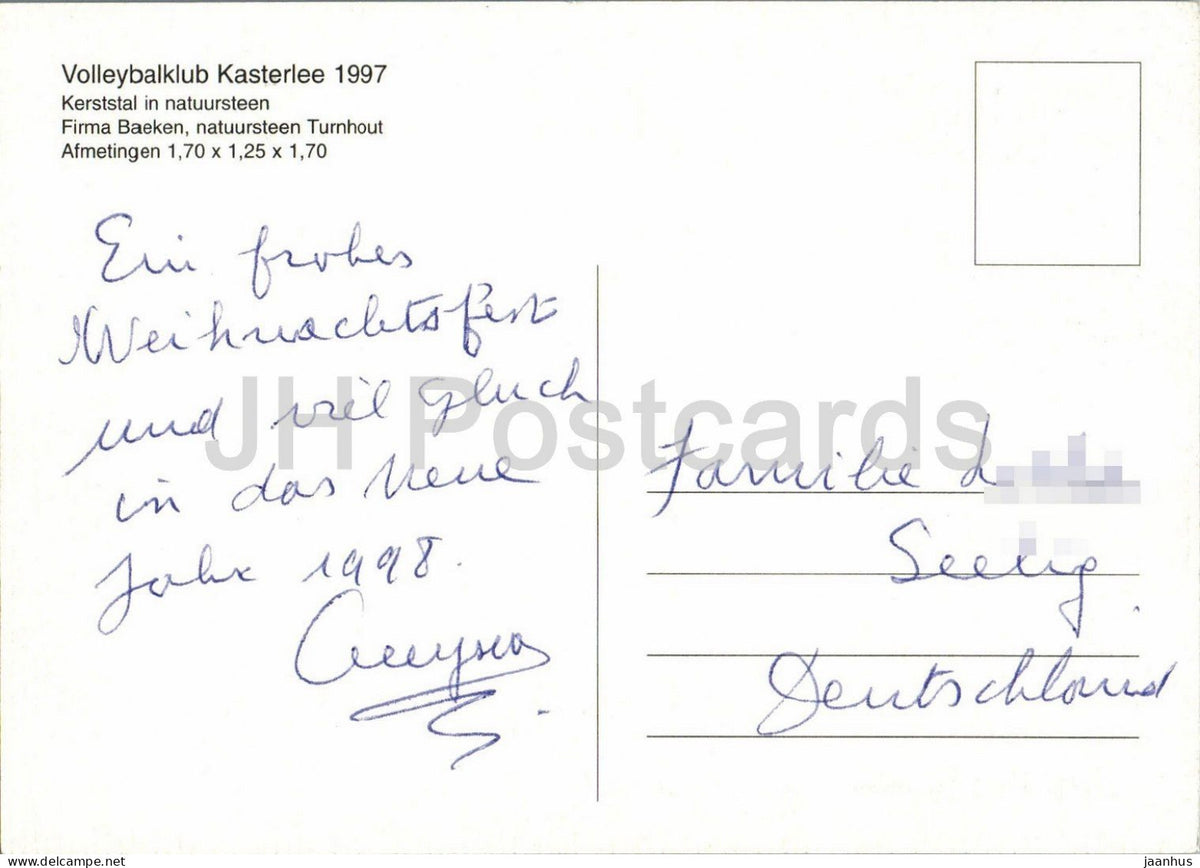 Volleybalklub Kasterlee 1997
Kerststal in natuursteen
Firma Baeken, natuursteen Turnhout
Afmetingen 1,70 x 1,25 x 1,70
Ein frohes
Weihnachtsfest
und viel gluck
in das neue
Jahr 1998.
JH Postcards
Familie
Deutschland
www.eu.delcampe.net
jaanhus